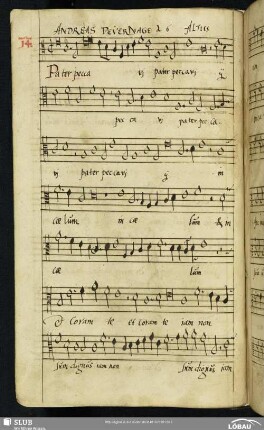 ANDREAS PEVERNAGE à 6 ALTUS
14
Pater pecca vj pater peccavi
pec ca vj pater pecca
vj pater peccavi in
cœ lum in cœ lum & in
cœ lum
& coram te et coram te iam non
sum dignus iam non sum dignus iam
SLUB
LÖBAU